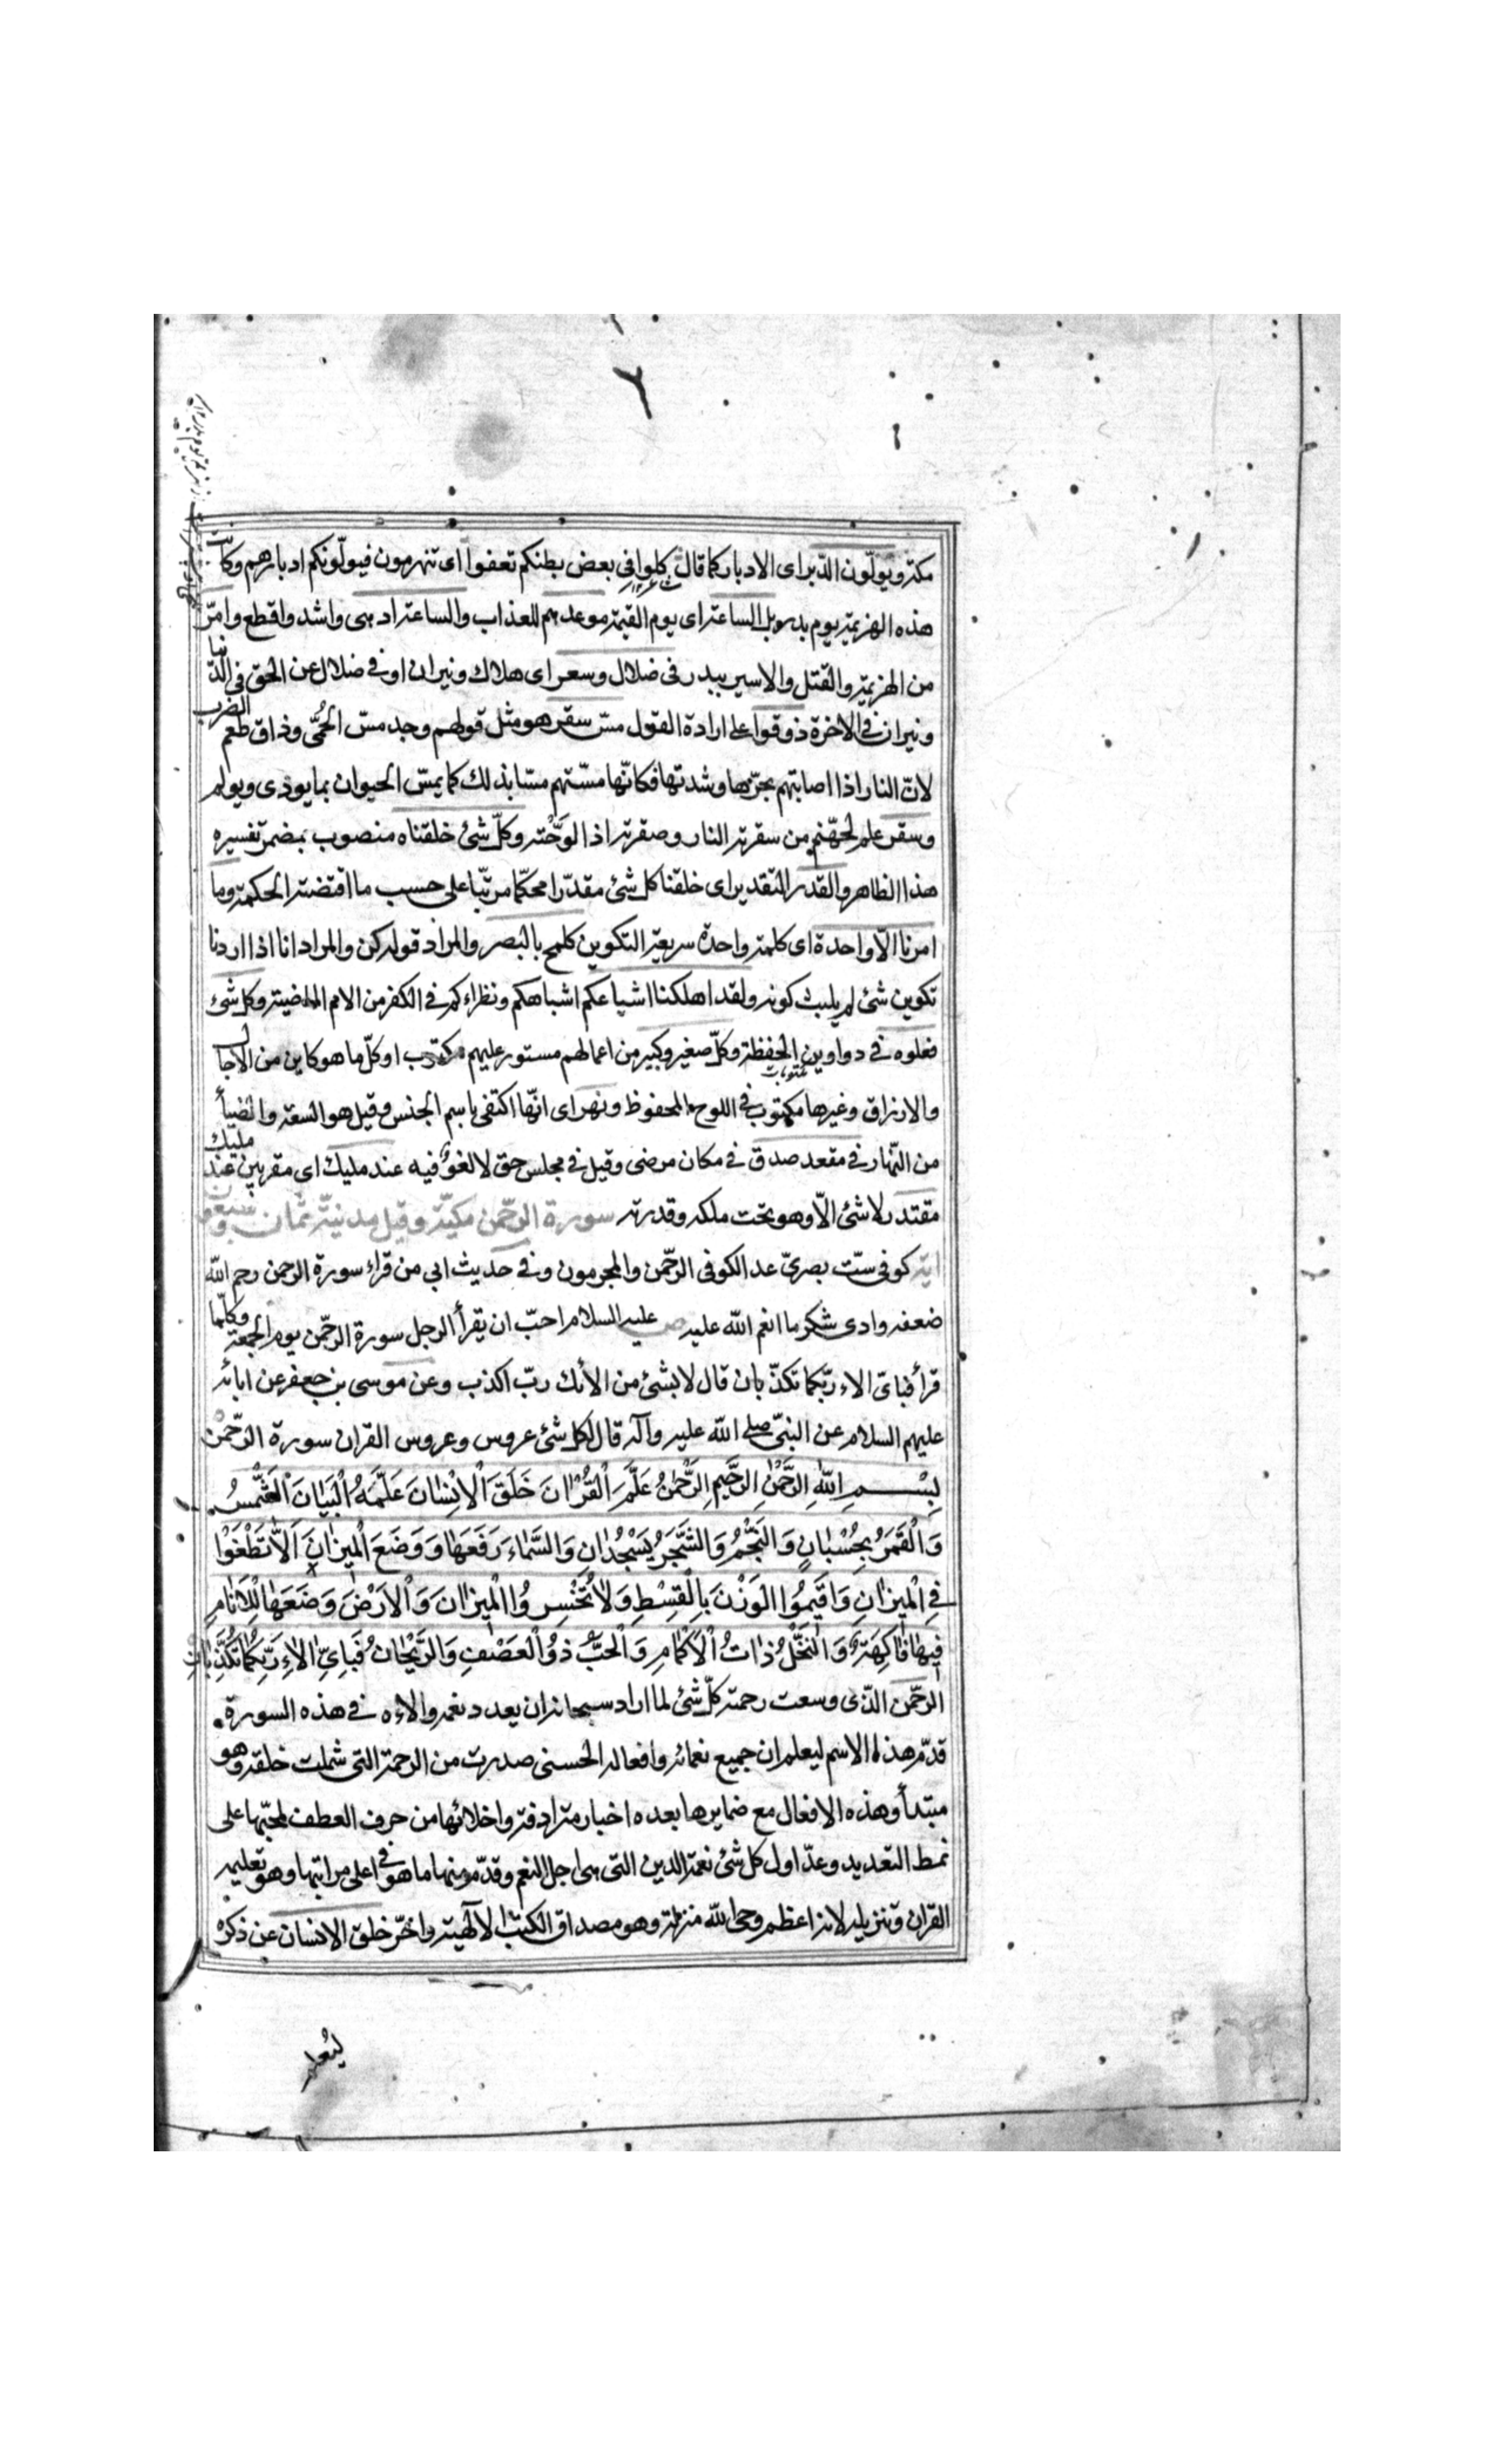 مكة ويولّون الدّبر اى الادبار كما قال كلوا في بعض بطنكم تعفوا اى تنهزمون فيولّونكم ادبارهم وكانت
هذه الهزيمة يوم بدر بل الساعة اى يوم القيمة موعدهم للعذاب والساعة ادهى واشد واقطع وامرّ
من الهزيمة والقتل والاسر ببدر في ضلال وسعر اى هلاك ونيران او في ضلال عن الحق في الدّنيا
ونيران في الاخرة ذوقوا على ارادة القول مسّ سقر هو مثل قولهم وجد مسّ الحُمّى وذاق طعم الضرب
لانّ النار اذا اصابتهم بحرّها وشدتها فكانّها مسّتهم مسّا بذلك كما يمسّ الحيوان بما يوذى ويولم
وسقر علم لجهّنم من سقرته النار وصقرته اذا لوّحْته وكلّ شئ خلقناه منصوب بمضمر تفسيره
هذا الظاهر والقدر التقدير اى خلقنا كل شئ مقدّرا محكما مرتّبا على حسب ما اقتضته الحكمة وما
امرنا الّا واحدة اى كلمة واحدة سريعة التكوين كلمح بالبصر والمراد قوله كن والمراد انا اذا اردنا
تكوين شئ لم يلبث كونه ولقد اهلكنا اشياعكم اشباهكم ونظراءكم في الكفر من الامم الماضية وكل شئ
فعلوه في دواوين الحفظة وكلّ صغير وكبير من اعمالهم مستور عليهم مكتوب او كلّ ما هو كاين من الآجال
والارزاق وغيرها مكتوب في اللوح المحفوظ ونهر اى انّها اكتفى باسم الجنس وقيل هو السعة والضياء
من النّهار في مقعد صدق في مكان مرضى وقيل في مجلس حق لا لغو فيه عند مليك اى مقربين عند مليك
مقتدر لا شئ الّا وهو تحت ملكه وقدرته سورة الرحّمن مكيّة وقيل مدنيّة ثمان وسبعون
اية كوفى ستّ بصرىّ عد الكوفى الرحّمن والمجرمون وفي حديث ابي من قراء سورة الرحمن رحم الله
ضعفه وادى شكر ما انعم الله عليه ص عليه السلام احبّ ان يقرأ الرجل سورة الرحّمن يوم الجمعة وكلّما
قرأ فباىّ الاء ربّكما تكذّبان قال لا بشئ من الآئك ربّ اكذب وعن موسى بن جعفر عن ابائه
عليهم السلام عن النبىّ صلى الله عليه وآله قال لكل شئ عروس وعروس القران سورة الرّحمن
بِسْمِ اللهِ الرَّحْمٰنِ الرَّحيمِ الرَّحْمٰنُ عَلَّمَ الْقُرْاٰنَ خَلَقَ الْاِنْسٰانَ عَلَّمَهُ الْبَيٰانَ الْشَّمْسُ
وَالْقَمَرُ بِحُسْبٰانٍ وَالنَّجْمُ وَالشَّجَرُ يَسْجُدٰانِ وَالسَّمٰاءَ رَفَعَهٰا وَوَضَعَ الْميزٰانَ اَلّٰا تَطْغَوْا
فِى الْميزٰانِ وَاَقيمُوا الْوَزْنَ بِالْقِسْطِ وَلٰا تُخْسِرُوا الْميزٰانَ وَالْاَرْضَ وَضَعَهٰا لِلْاَنٰامِ
فيهٰا فٰاكِهَةٌ وَالنَّخْلُ ذٰاتُ الْاَكْمٰامِ وَالْحَبُّ ذُو الْعَصْفِ وَالرَّيْحٰانُ فَبِاَىِّ اٰلٰاءِ رَبِّكُمٰا تُكَذِّبٰانِ
الرحّمن الذّى وسعت رحمته كلّ شئ لما اراد سبحانه ان يعدد نعمه والاءه في هذه السورة
قدّم هذا الاسم ليعلم ان جميع نعمائه وافعاله الحسنى صدرت من الرحمة التى شملت خلقه وهو
مبتدأ وهذه الافعال مع ضمايرها بعده اخبار مترادفة واخلائها من حرف العطف لمجيّها على
نمط التعديد وعدّ اول كل شئ نعمة الدين التى هى اجل النعم وقدّم منها ما هو في اعلى مراتبها وهو تعليم
القران وتنزيله لانه اعظم وحى الله منزلة وهو مصداق الكتب الالٓهية واخّر خلق الانسان عن ذكره
ليُعلم